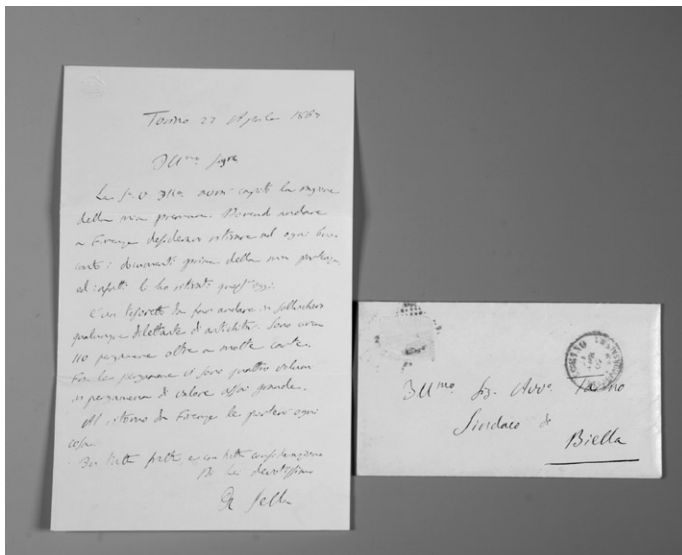 Torino 22 Aprile 186
Ill.mo Sigre
La S. V. Ill.ma avrà capito la ragione
della mia premura. Dovendo andare
a Firenze desideravo ritirare ad ogni buon
conto i documenti prima della mia partenza,
ed infatti li ho ritirati quest'oggi.
È un tesoretto da far andare in
qualunque dilettante di antichità. Sono circa
110 pergamene oltre a molte carte.
Fra le pergamene vi sono quattro volumi
in pergamena di valore assai grande.
Al ritorno da Firenze le porterò ogni
cosa.
In tutta fretta e con tutta considerazione
Di Lei devotissimo
Q. Sella
Ill.mo Sig. Avv.o
Sindaco di
Biella
TORINO